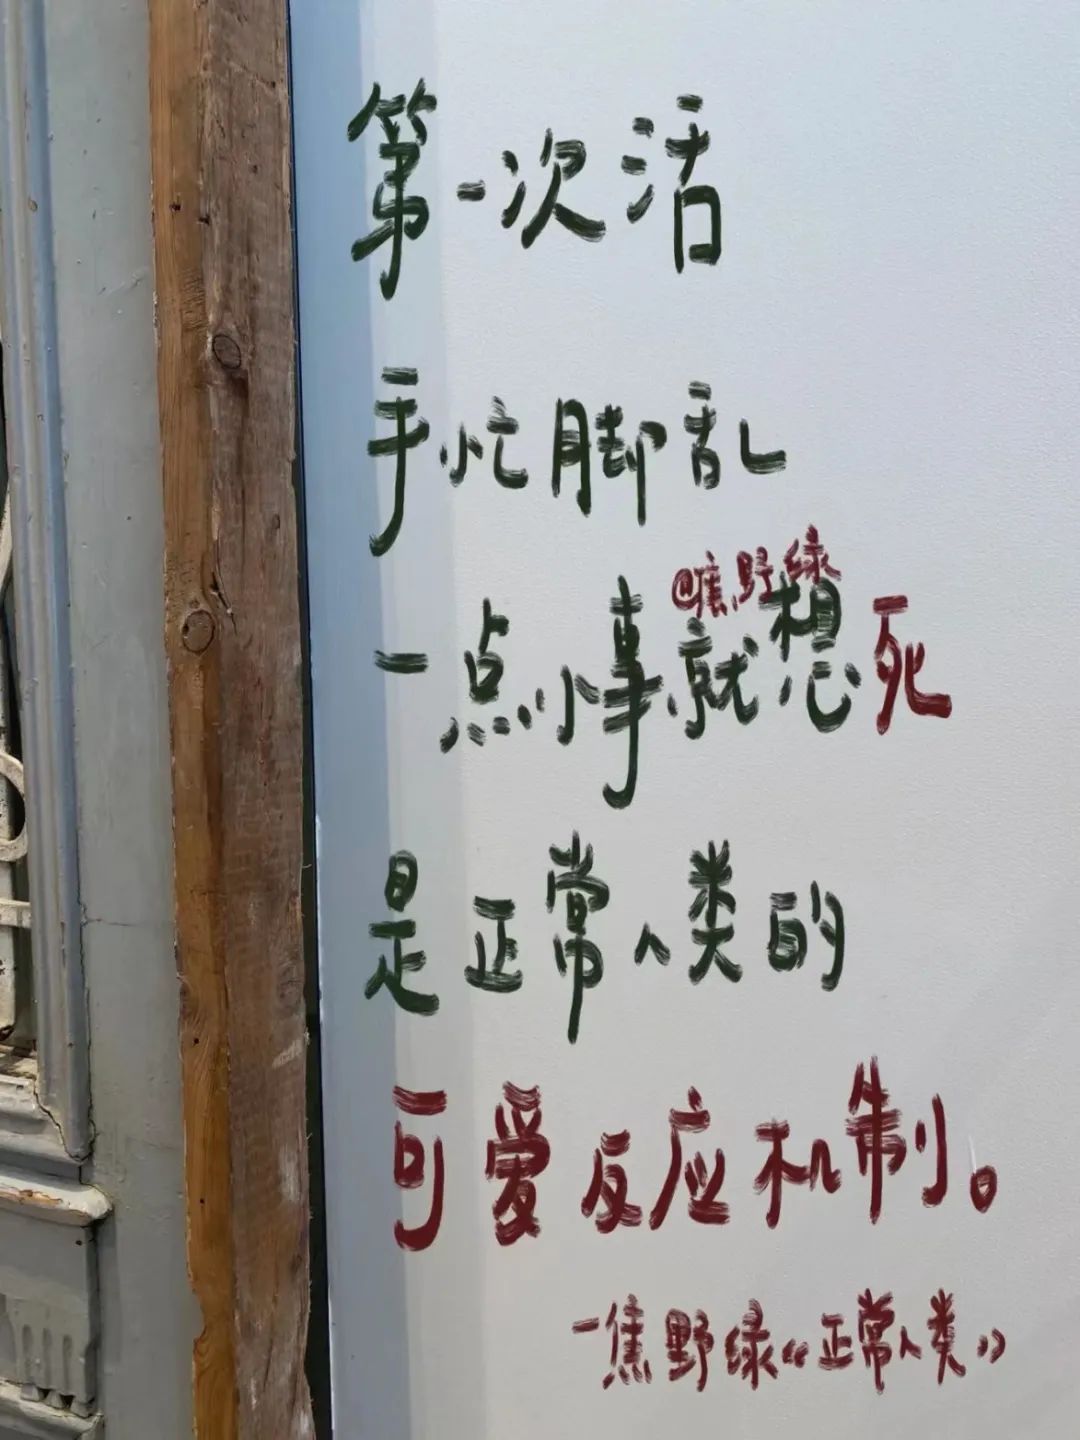 第一次活
手忙脚乱
@焦野绿
一点小事就想死
是正常人类的
可爱反应机制。
一焦野绿《正常人类》